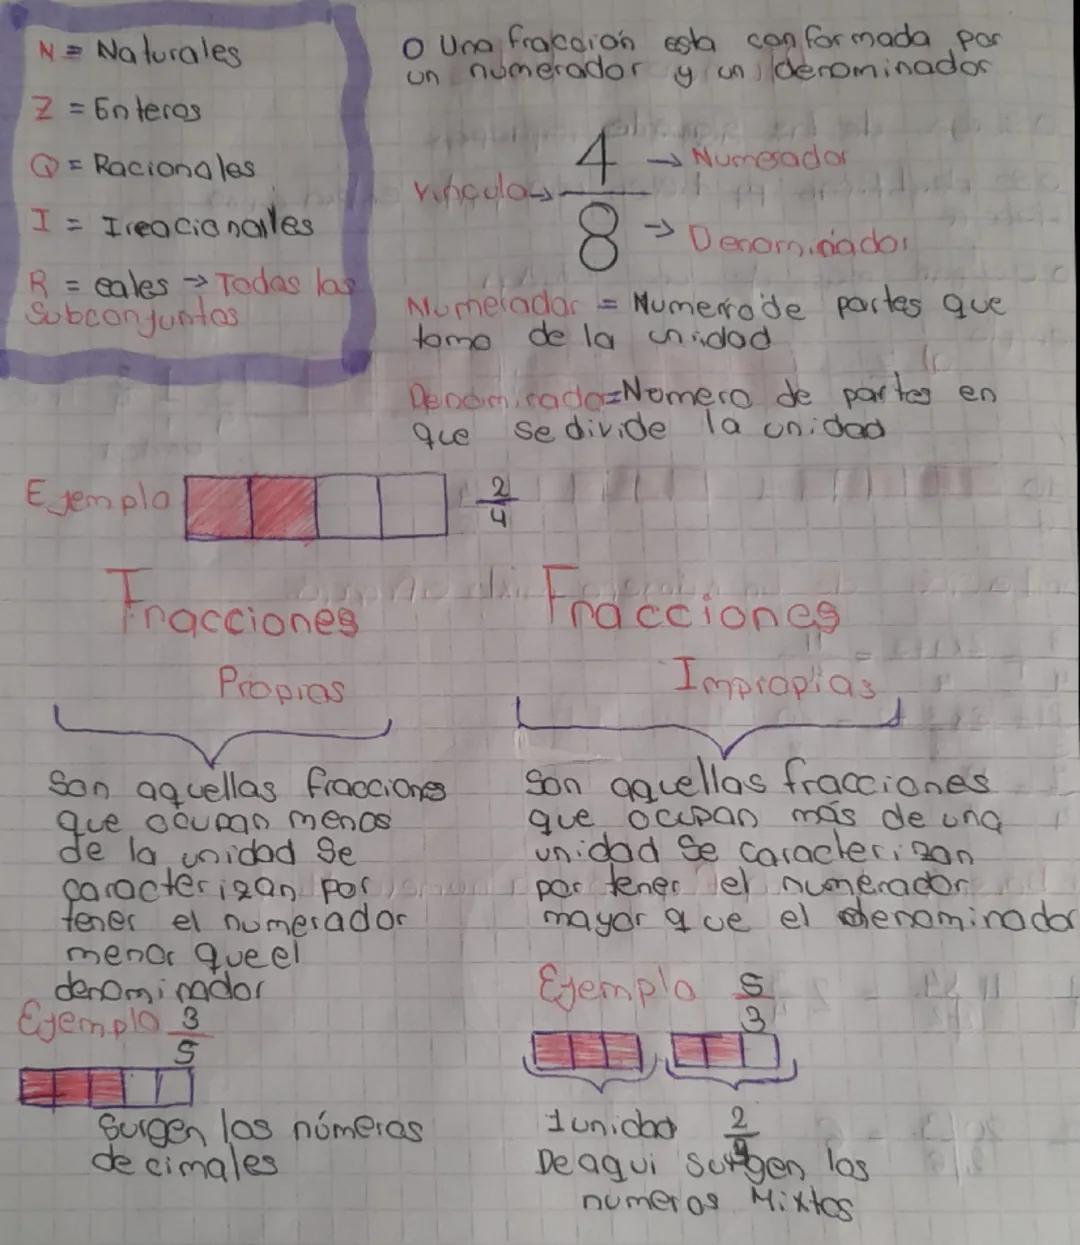 N = Naturales
Z = Enteros
Q = Racionales
I = Irracionales
R = eales → Todas las
Subconjuntos
O Una fracción esta conformada por
un numerador y un denominador
4 → Numerador
Vinculo →
8 → Denominador
Numerador = Numero de partes que
tomo de la unidad
Denominador = Nomero de partes en
que se divide la unidad
Ejemplo 2/4
Fracciones
Propias
Son aquellas fracciones
que ocupan menos
de la unidad Se
caracterizan por
tener el numerador
menor que el
denominador
Ejemplo 3/5
Surgen los números
decimales
Fracciones
Impropias
Son aquellas fracciones
que ocupan más de una
unidad Se caracterizan
por tener el numerador
mayor que el denominador
Ejemplo 5/3
1 unidad 2
De aqui surgen los
numeros Mixtos